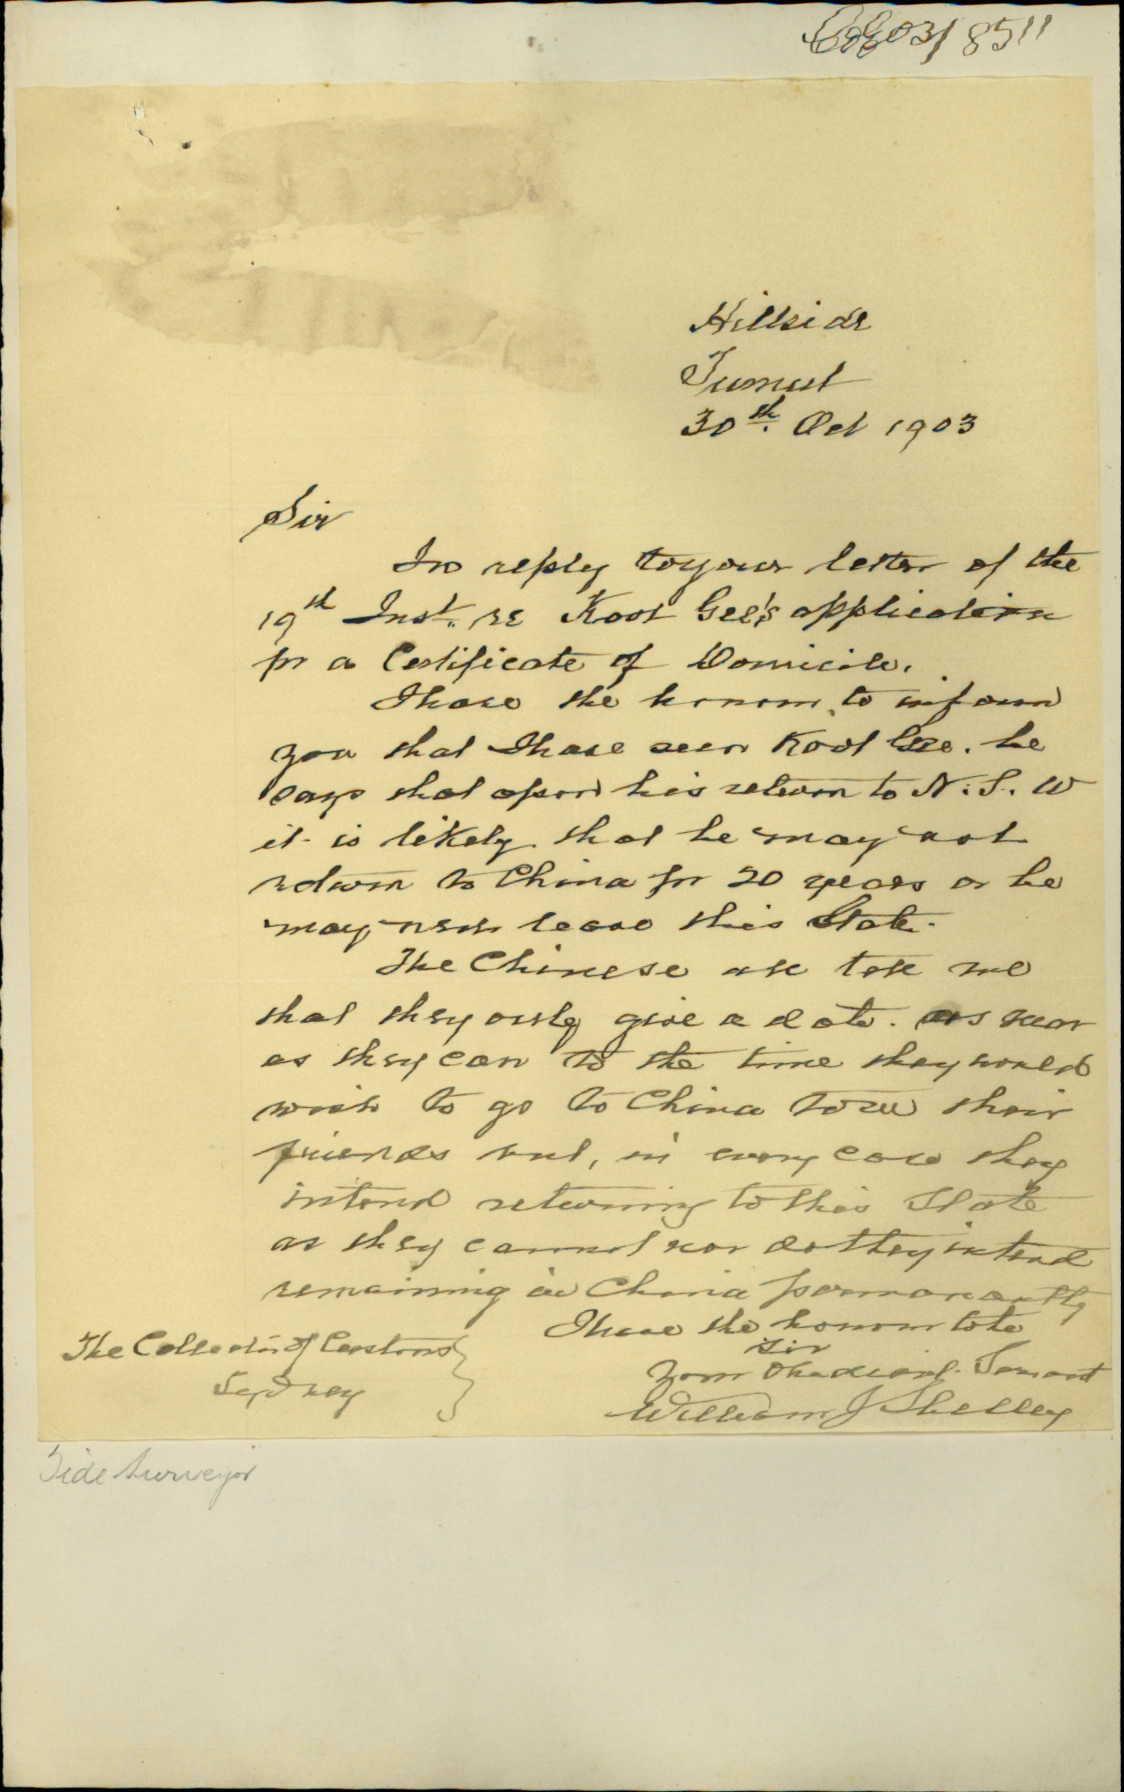 03/8511
Hillside
Tumut
30th. Oct 1903
Sir
In reply to your letter of the
19th Inst. re Koot Gee's application
for a Certificate of Domicile.
I have the honour to inform
you that I have seen Koot Gee. he
says that upon his return to N.S.W
it is likely that he may not
return to China for 20 years or he
may never leave this State.
The Chinese all tell me
that they only give a date. as near
as they can to the time they would
wish to go to China to see their
friends but, in every case they
intend returning to this State
as they cannot nor do they intend
remaining in China permanently
I have the honour to be
Sir
Your Obedient. Servant
William J Shelley
The Collector of Customs
Sydney
Tide Surveyor